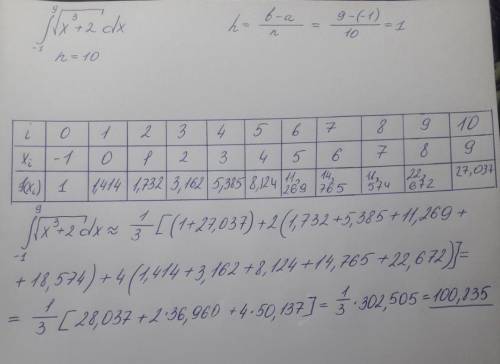 ∫₋₁⁹ √(x³+2) dx
h = (b-a)/n = (9-(-1))/10 = 1
n = 10
i 0 1 2 3 4 5 6 7 8 9 10
xᵢ -1 0 1 2 3 4 5 6 7 8 9
f(xᵢ) 1 1,414 1,732 3,162 5,385 8,124 11,269 14,765 18,574 22,672 27,037
∫₋₁⁹ √(x³+2) dx ≈ 1/3 [(1+27,037)+2(1,732+5,385+11,269+
+18,574)+4(1,414+3,162+8,124+14,765+22,672)]=
= 1/3 [28,037+2·36,960+4·50,137] = 1/3 · 302,505 = 100,835